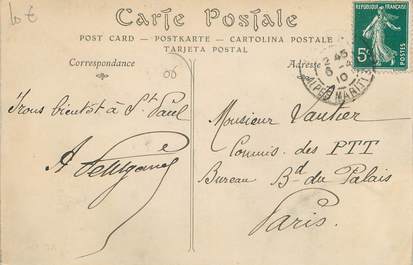 Carte Postale
POST CARD — POSTKARTE — CARTOLINA POSTALE
TARJETA POSTAL
Correspondance
Adresse
REPUBLIQUE FRANÇAISE
POSTES
5c
Irons bientôt à St Paul
A
Monsieur Vautier
Commis. des PTT
Bureau Bd du Palais
Paris.